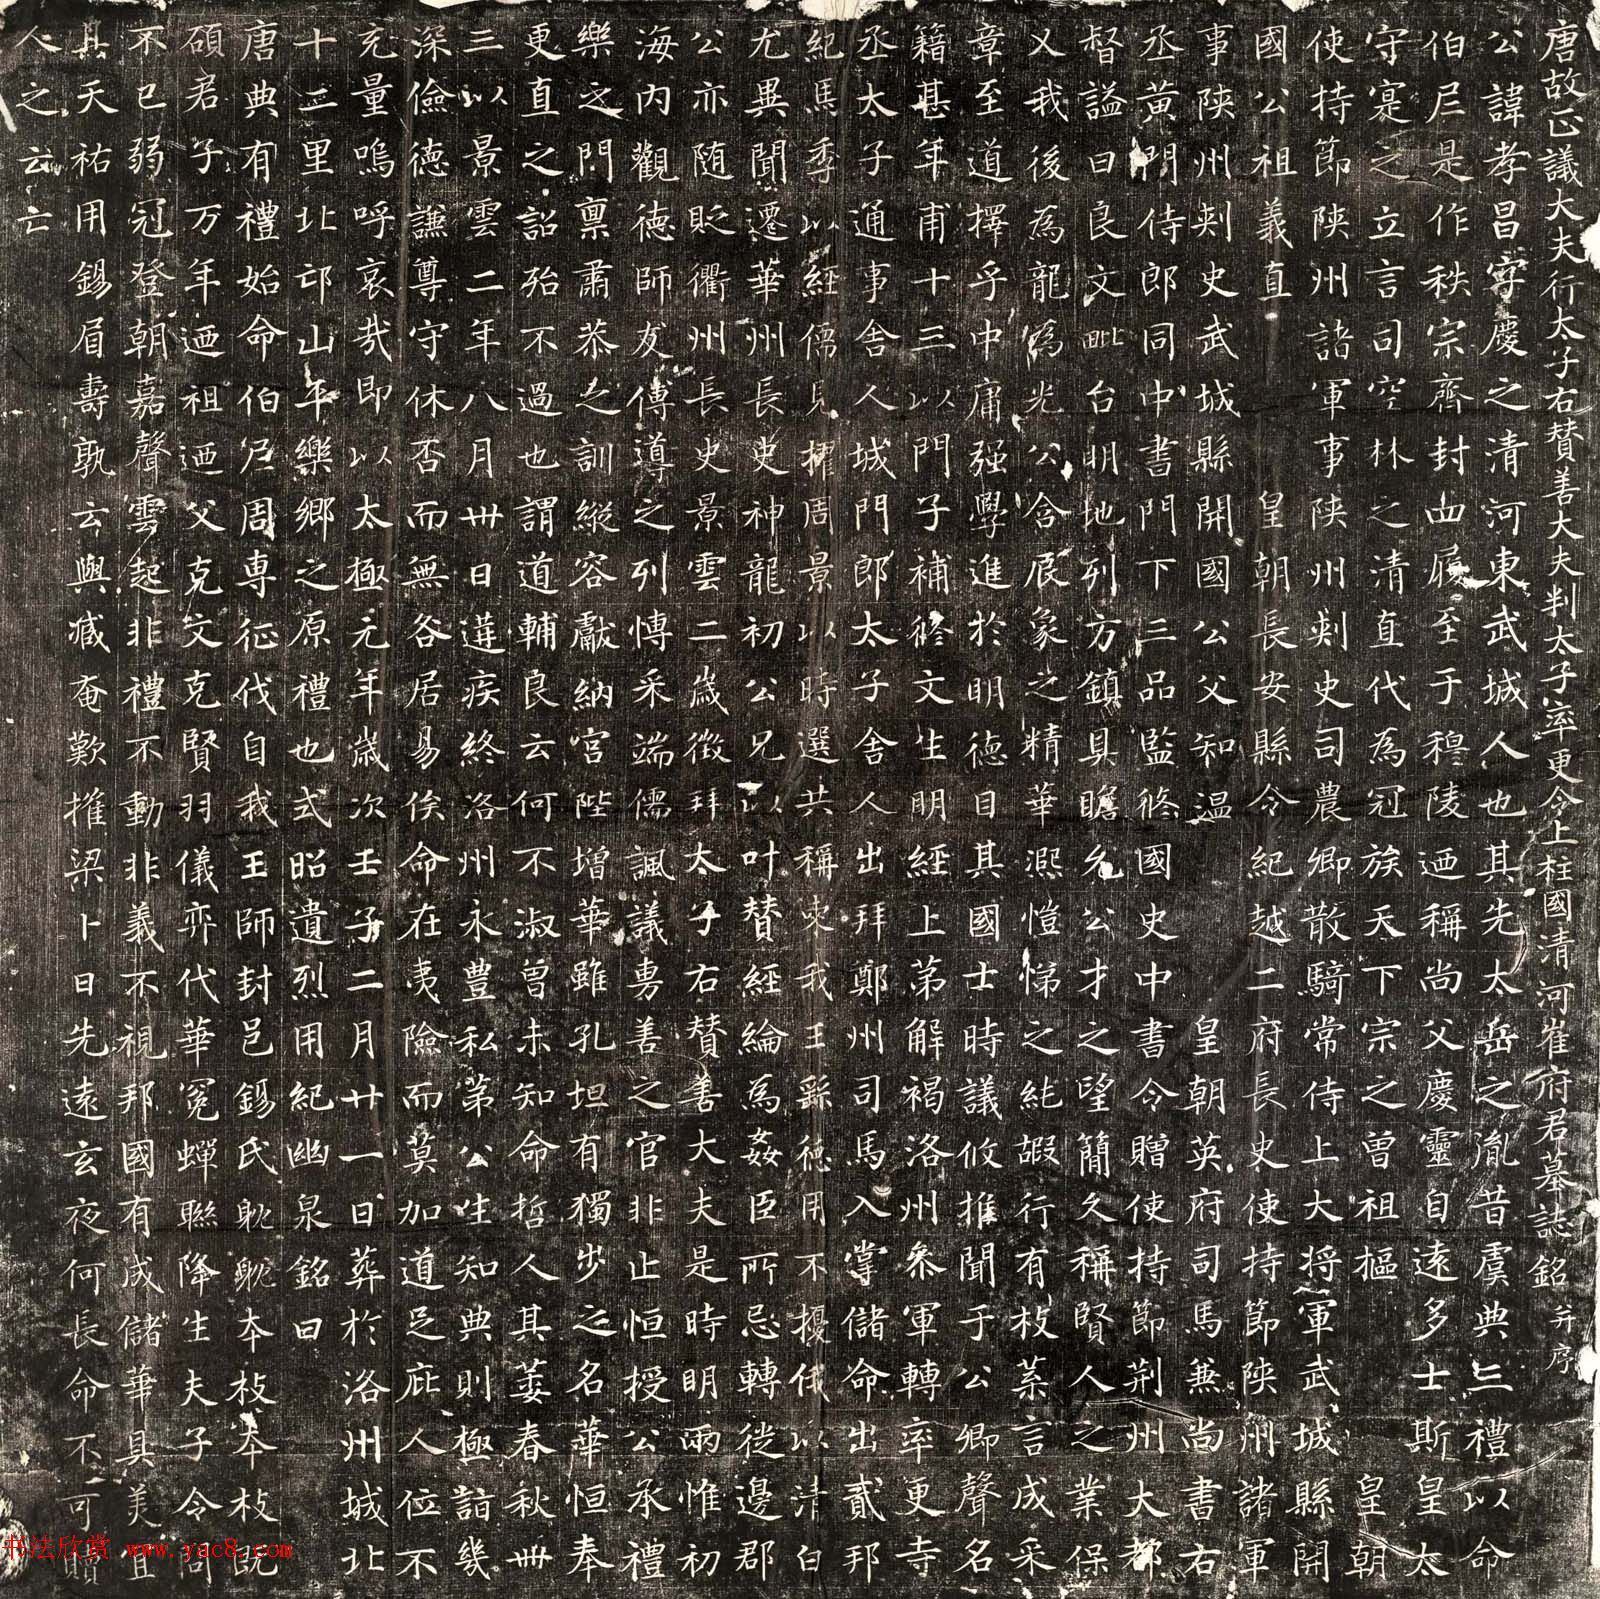 唐故正議大夫行太子右賛善大夫判太子率更令上柱國清河崔府君墓誌銘并序
公諱孝昌字慶之清河東武城人也其先太岳之胤昔虞典三禮以命
伯尼是作秩宗齊封四履至于穆陵迺稱尚父慶靈自遠多士斯皇太
守寔之立言司空林之清直代為冠族天下宗之曾祖樞皇朝
使持節陝州諸軍事陝州刾史司農卿散騎常侍上大将軍武城縣開
國公祖義直皇朝長安縣令紀越二府長史使持節陝州諸軍
事陝州刾史武城縣開國公父知温皇朝英府司馬兼尚書右
丞黃門侍郎同中書門下三品監修國史中書令贈使持節荆州大都
督謚曰良文毗台明地列方鎮具瞻允公才之望簡久稱賢人之業保
乂我後為龍為光公含辰象之精華凞愷悌之純嘏行有枝葉言成采
章至道擇乎中庸强學進於明德目其國士時議攸推聞于公卿聲名
籍甚年甫十三以門子補修文生明經上第解褐洛州叅軍轉率更寺
丞太子通事舍人城門郎太子舍人出拜鄭州司馬入掌儲命出貳邦
紀馬季以經儒見擢周景以時選共稱柬我王繇德用不擾俄以清白
尤異聞遷華州長史神龍初公兄以叶賛經綸為姦臣所忌轉徙邊郡
公亦随貶衢州長史景雲二歲徵拜太子右賛善大夫是時明兩惟初
海内觀德師友傅導之列慱采端儒諷議勇善之官非止恒授公承禮
樂之門禀肅恭之訓縱容獻納宮陛增華雖孔坦有獨步之名華恒奉
更直之詔殆不過也謂道輔良云何不淑曾未知命哲人其萎春秋卌
三以景雲二年八月卅日遘疾終洛州永豊私第公生知典則極詣幾
深儉德謙尊守休否而無咎居易俟命在夷險而莫加道足庇人位不
充量嗚呼哀㢤即以太極元年歲次壬子二月廿一日葬於洛州城北
十三里北邙山平樂鄉之原禮也式昭遺烈用紀幽泉銘曰
唐典有禮始命伯尼周専征伐自我王師封邑錫氏躭躭夲枝夲枝既
碩君子万年迺祖迺父克文克賢羽儀弈代華冕蟬聯降生夫子令問
不已弱冠登朝嘉聲雲起非禮不動非義不視邦國有成儲華具美宜
其天祐用錫眉壽孰云輿臧奄歎摧梁卜日先遠玄夜何長命不可贖
人之云亡
书法欣赏 www.yac8.com